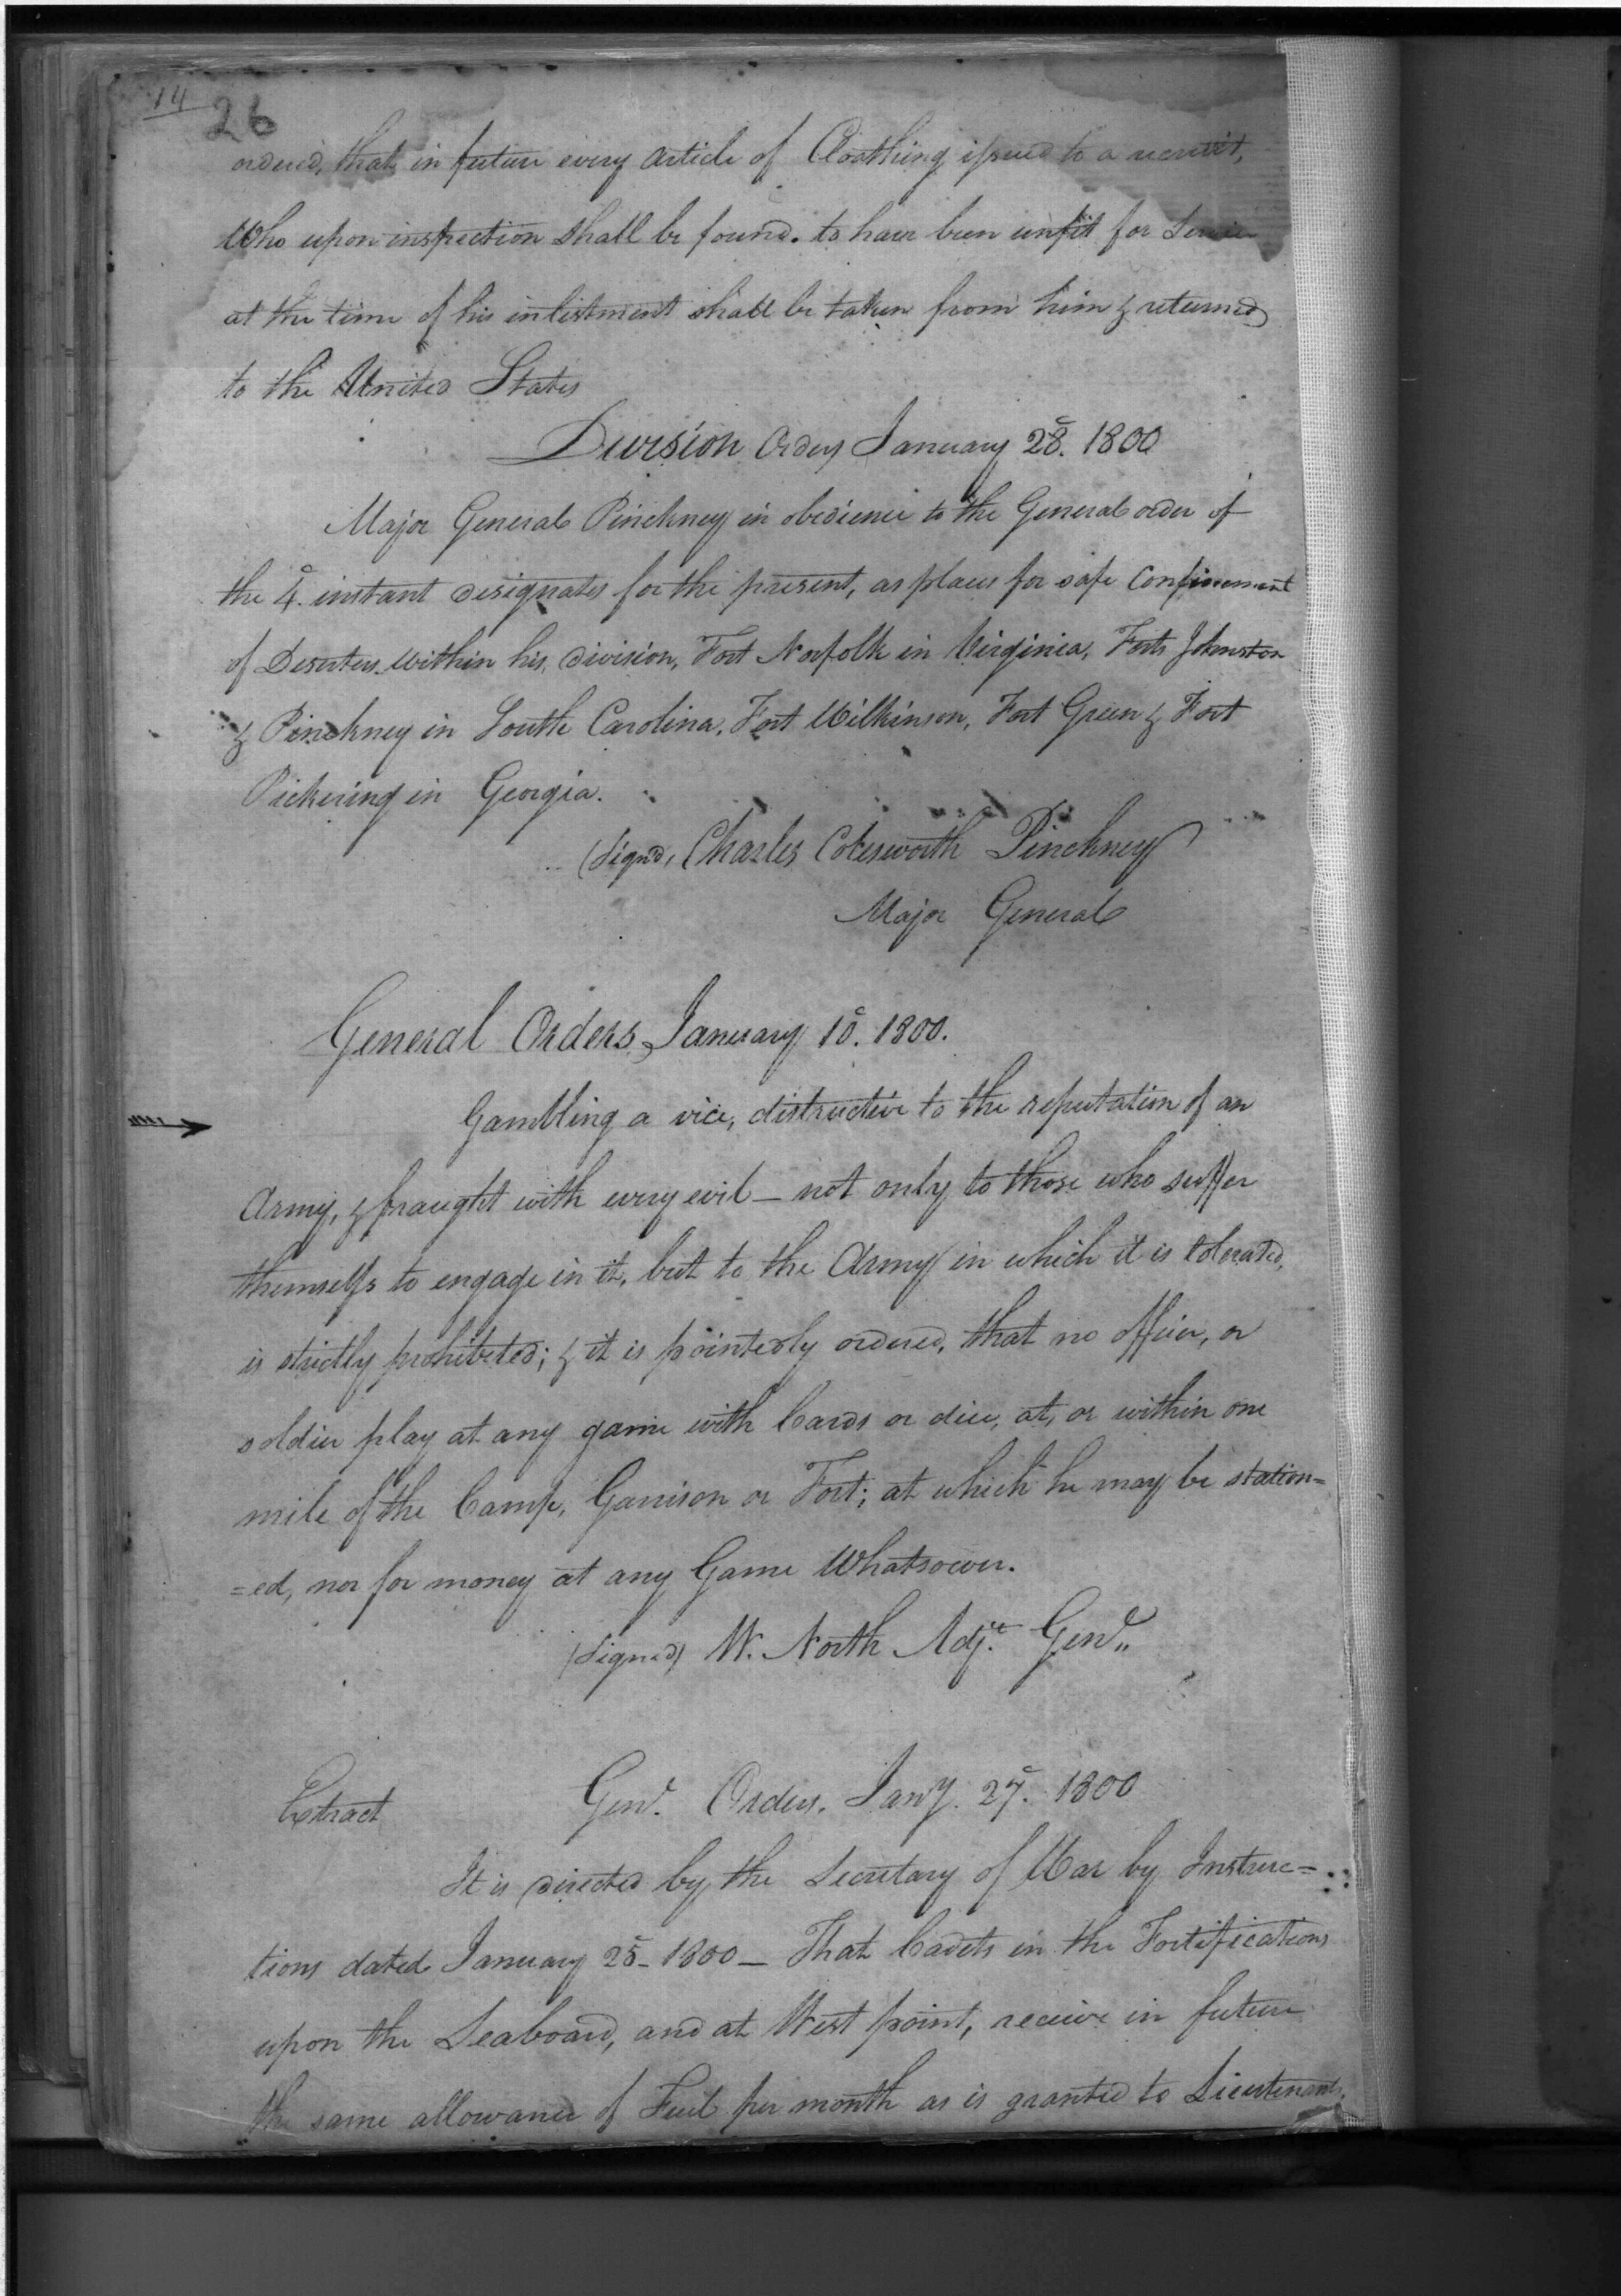 14
26
ordered, that in future every article of Cloathing issued to a recruit,
Who upon inspection shall be found. to have been unfit for Service
at the time of his inlistment shall be taken from him & returned
to the United States
Division Orders January 28. 1800
Major General Pinckney in obedience to the General order of
the 4. instant designates for the present, as places for safe Confinement
of Deserters within his division, Fort Norfolk in Virginia, Forts Johnston
& Pinckney in South Carolina, Fort Wilkinson, Fort Green & Fort
Pickering in Georgia.
(Signd, Charles Cotesworth Pinckney
Major General
General Orders January 10. 1800.
Gambling a vice, distructive to the reputation of an
Army, & fraught with every evil — not only to those who suffer
themselfs to engage in it, but to the Army in which it is tolerated,
is strictly prohibited; & it is pointedly ordered, that no officer, or
soldier play at any game with Cards or dice, at, or within one
mile of the Camp, Garrison or Fort; at which he may be station=
=ed, nor for money at any Game Whatsoever.
(Signed) W. North Adjt. Genl.
Extract Genl. Orders. Jany. 27. 1800
It is directed by the Secretary of War by Instruc=
tions dated January 25 - 1800 — That Cadets in the Fortifications
upon the Seaboard, and at West point, receive in future
the same allowance of Fuel per month as is granted to Lieutenants.